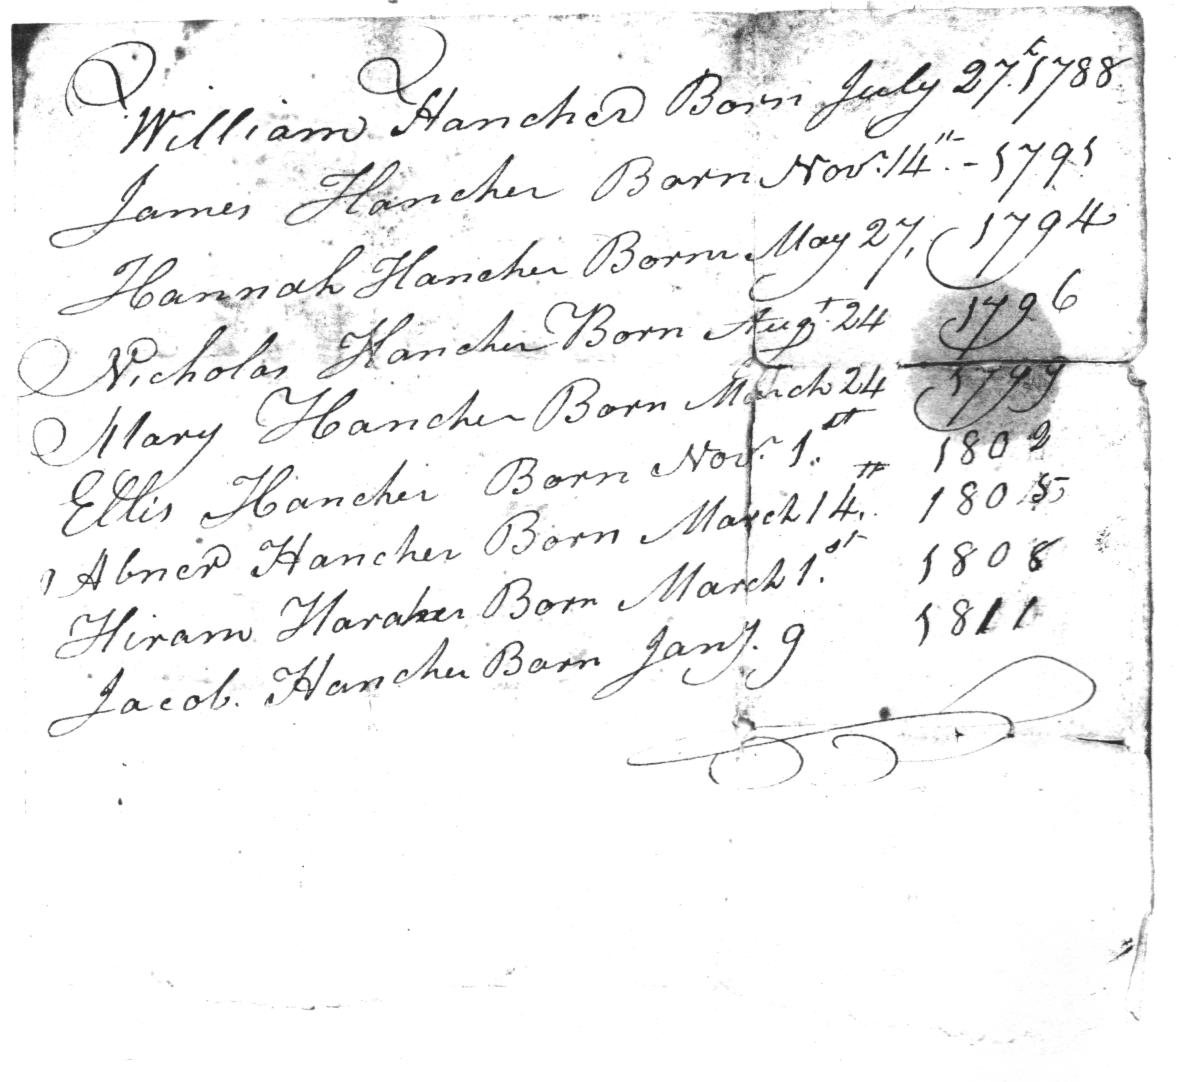 William Hancher Born July 27.t 1788
James Hancher Born Novr. 14th. - 1791
Hannah Hancher Born May 27, 1794
Nicholas Hancher Born Augt. 24 1796
Mary Hancher Born March 24 1799
Ellis Hancher Born Novr. 1.st 1802
Abner Hancher Born March 14.th 1805
Hiram Hancher Born March 1.st 1808
Jacob. Hancher Born Jany. 9 1811